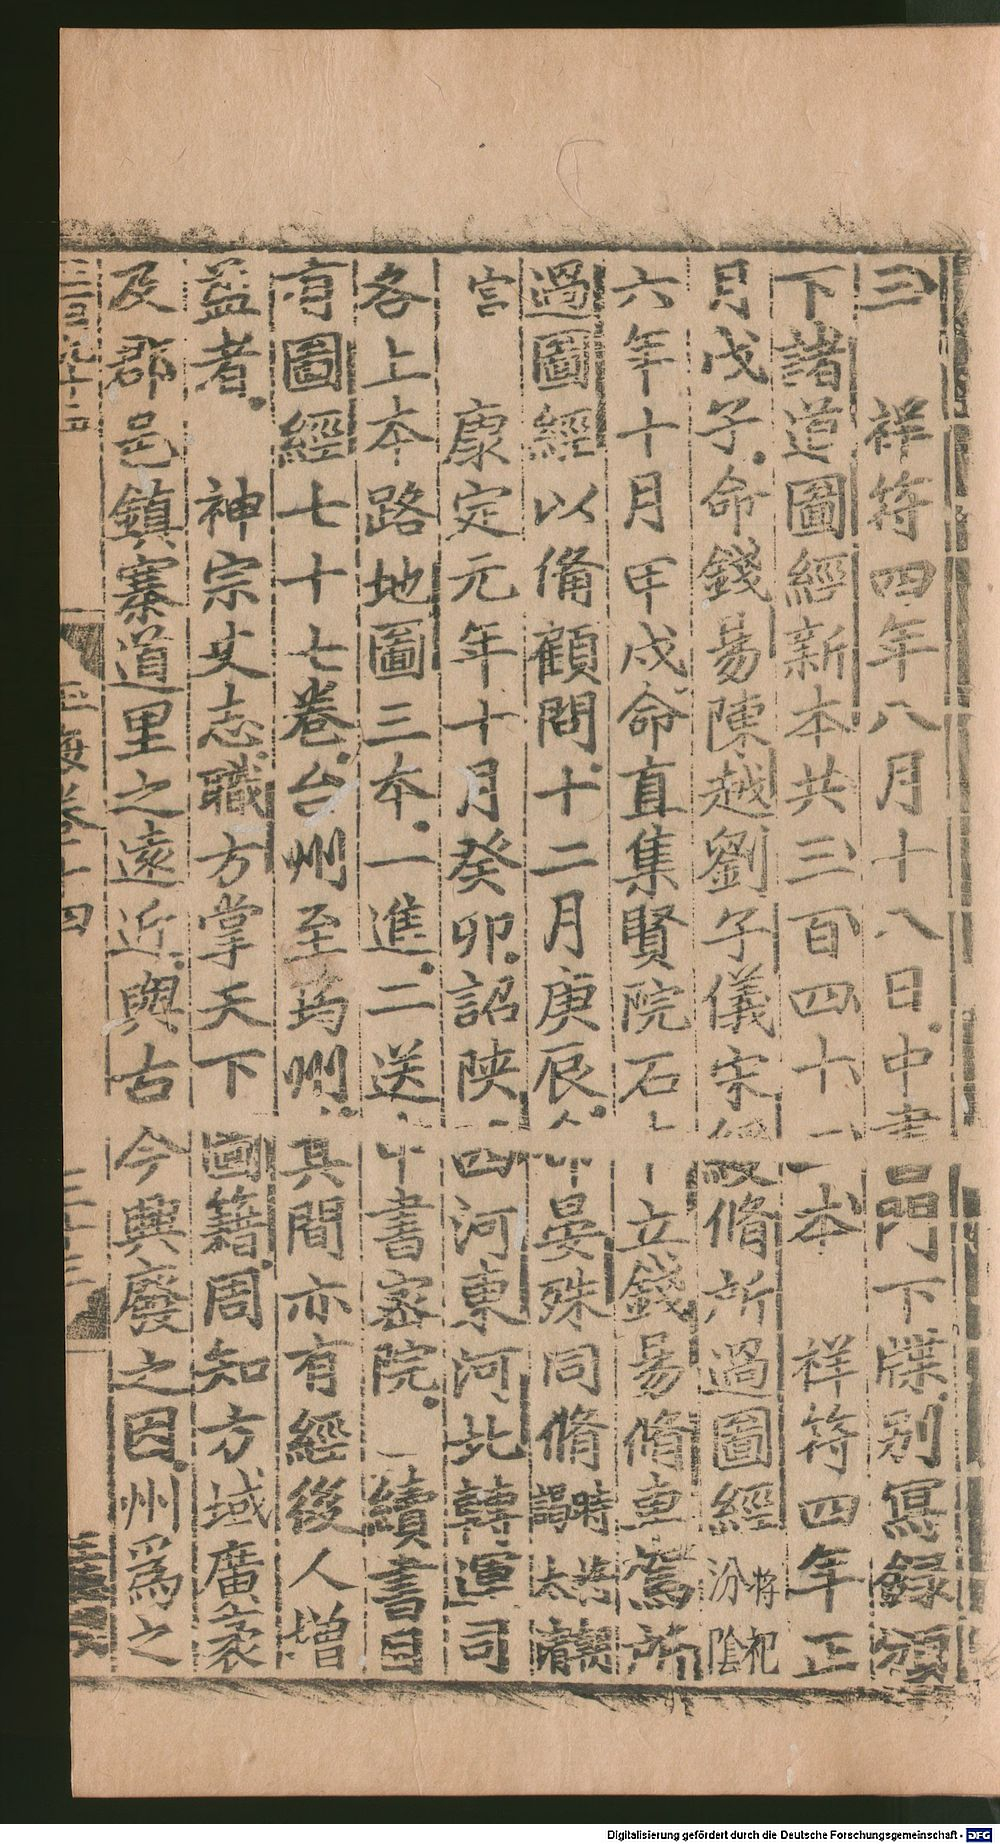 三　祥符四年八月十八日中書門下牒別冩録頒
下諸道圖經新本共三百四十一本　祥符四年正
月戊子命錢易陳越劉子儀宋綬脩所過圖經將祀汾陰
六年十月甲戌命直集賢院石中立錢易脩車駕所
過圖經以備顧問十二月庚辰命晏殊同脩時謁太清
宮　康定元年十月癸卯詔陝西河東河北轉運司
各上本路地圖三本一進二送中書密院　續書目
有圖經七十七卷台州至均州其間亦有經後人增
益者　神宗史志職方掌天下圖籍周知方域廣袤
及郡邑鎮寨道里之遠近與古今興廢之因州爲之
三百九十五
玉海卷十四
三十三
Digitalisierung gefördert durch die Deutsche Forschungsgemeinschaft - DFG